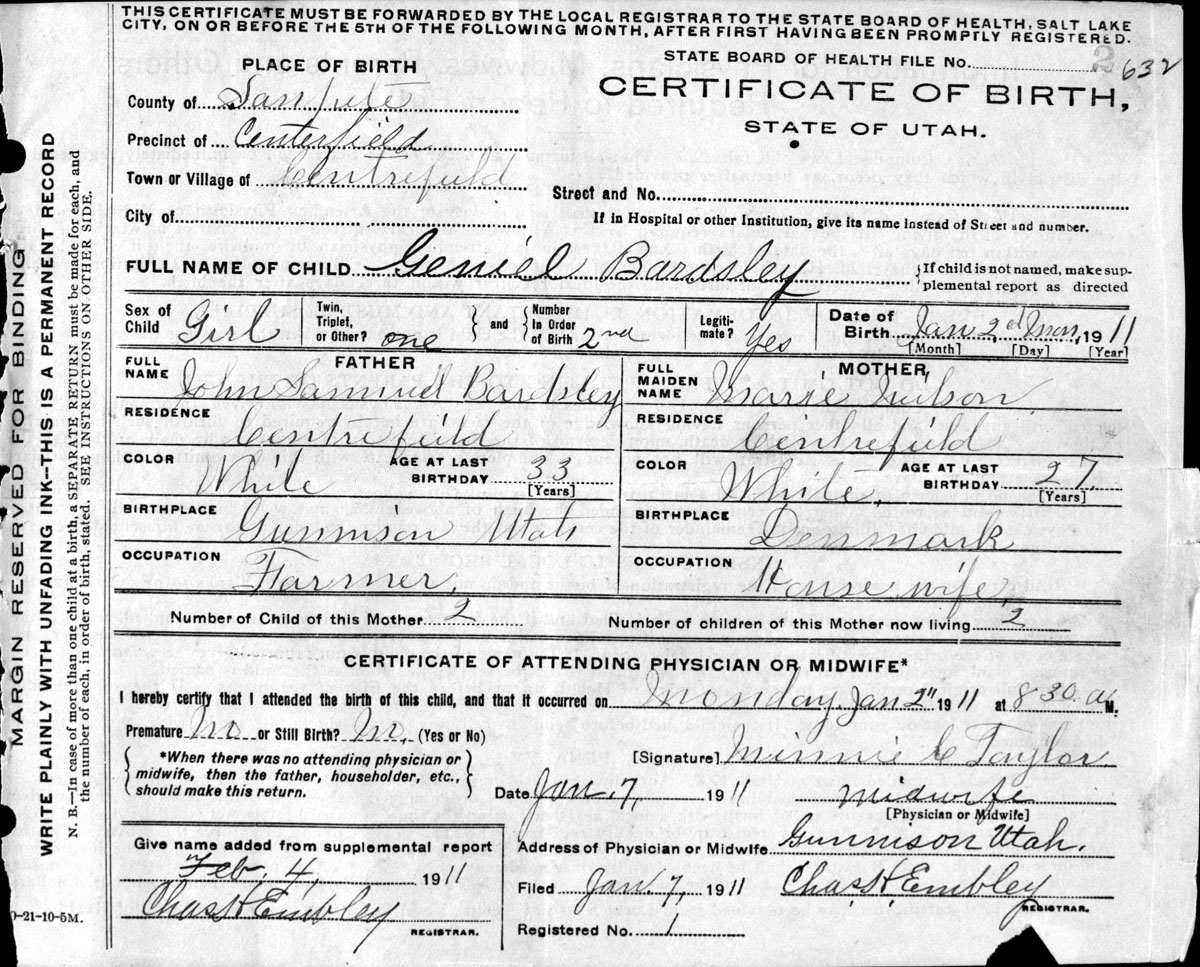 THIS CERTIFICATE MUST BE FORWARDED BY THE LOCAL REGISTRAR TO THE STATE BOARD OF HEALTH, SALT LAKE
CITY, ON OR BEFORE THE 5TH OF THE FOLLOWING MONTH, AFTER FIRST HAVING BEEN PROMPTLY REGISTERED.
STATE BOARD OF HEALTH FILE No. 2 632
PLACE OF BIRTH
CERTIFICATE OF BIRTH,
STATE OF UTAH.
County of Sanpete
Precinct of Centerfield
Town or Village of Centrefield
Street and No.
City of
If in Hospital or other Institution, give its name instead of Street and number.
FULL NAME OF CHILD Geniel Bardsley
{If child is not named, make sup-
plemental report as directed
Sex of Child Girl
Twin, Triplet, or Other? one
{ and }
Number In Order of Birth 2nd
Legiti- mate? Yes
Date of Birth Jan 2d Mon, 1911
[Month] [Day] [Year]
FATHER
FULL NAME John Samuel Bardsley
MOTHER
FULL MAIDEN NAME Marie Neilson
RESIDENCE Centrefield
RESIDENCE Centrefield
COLOR White
AGE AT LAST BIRTHDAY 33
[Years]
COLOR White
AGE AT LAST BIRTHDAY 27
[Years]
BIRTHPLACE Gunnison Utah
BIRTHPLACE Denmark
OCCUPATION Farmer,
OCCUPATION House wife,
Number of Child of this Mother 2
Number of children of this Mother now living 2
CERTIFICATE OF ATTENDING PHYSICIAN OR MIDWIFE*
I hereby certify that I attended the birth of this child, and that it occurred on Monday, Jan 2" 1911 at 8 30 A M.
Premature No or Still Birth? No, (Yes or No)
*When there was no attending physician or
midwife, then the father, householder, etc.,
should make this return.
[Signature] Minnie C Taylor
Date Jan. 7, 1911
midwife
[Physician or Midwife]
Address of Physician or Midwife Gunnison Utah.
Filed Jan. 7, 1911 Chas H Embley
REGISTRAR.
Registered No. 1
Give name added from supplemental report
Feb. 4 1911
Chas H Embley
REGISTRAR.
0-21-10-5M.
MARGIN RESERVED FOR BINDING
WRITE PLAINLY WITH UNFADING INK—THIS IS A PERMANENT RECORD
N. B.—In case of more than one child at a birth, a SEPARATE RETURN must be made for each, and
the number of each, in order of birth, stated. SEE INSTRUCTIONS ON OTHER SIDE.